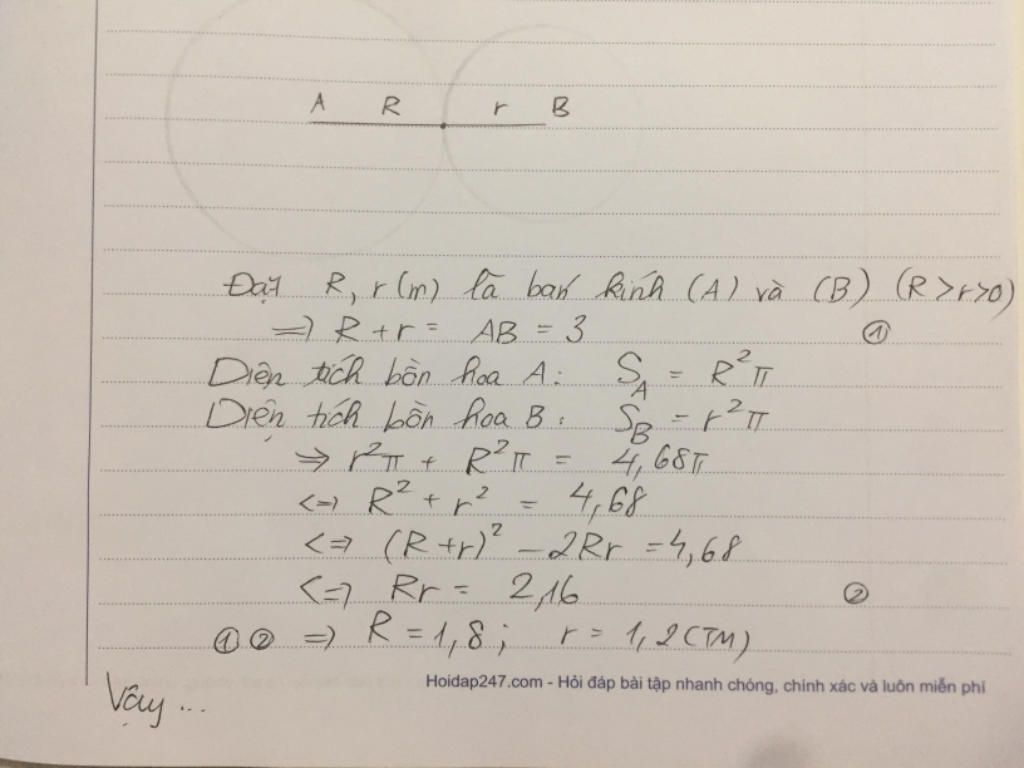 A R r B
Đặt R, r (m) là bán kính (A) và (B) (R > r > 0)
=> R + r = AB = 3 ①
Diện tích bồn hoa A: S_A = R²π
Diện tích bồn hoa B: S_B = r²π
=> r²π + R²π = 4,68π
<=> R² + r² = 4,68
<=> (R + r)² - 2Rr = 4,68
<=> Rr = 2,16 ②
① ② => R = 1,8; r = 1,2 (TM)
Hoidap247.com - Hỏi đáp bài tập nhanh chóng, chính xác và luôn miễn phí
Vậy ...